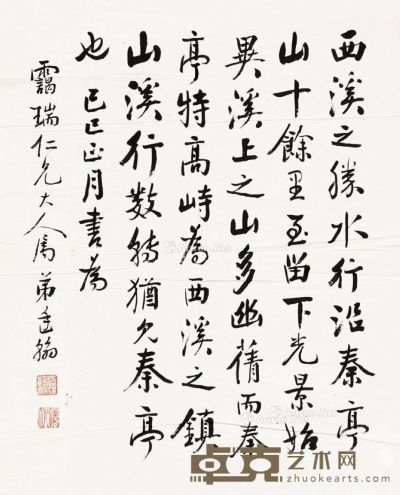 西溪之勝水行沿秦亭
山十餘里至留下光景始
異溪上之山多幽蒨而秦
亭特高峙為西溪之鎮
山溪行数轉猶見秦亭
也己巳正月書為
靄瑞仁兄大人属弟垂翰
卓克艺术网
zhuokearts.com